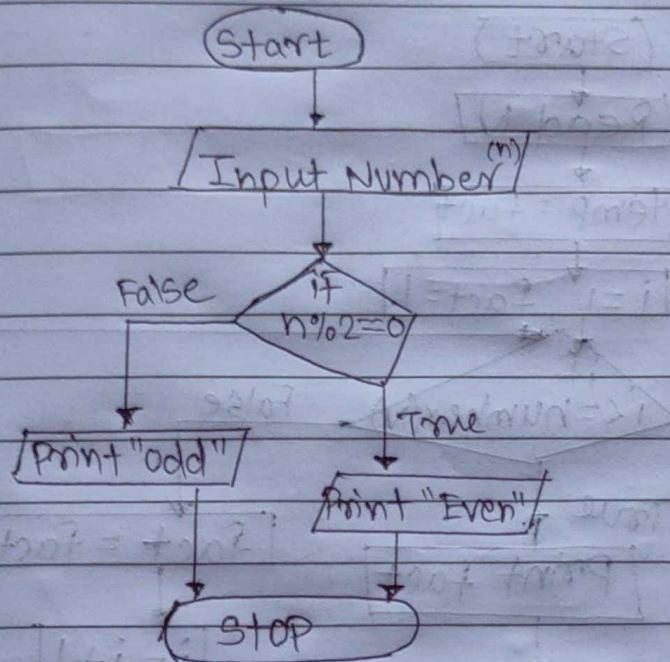 Start
Input Number (n)
if
n%2==0
False
True
Print "odd"
Print "Even"
STOP